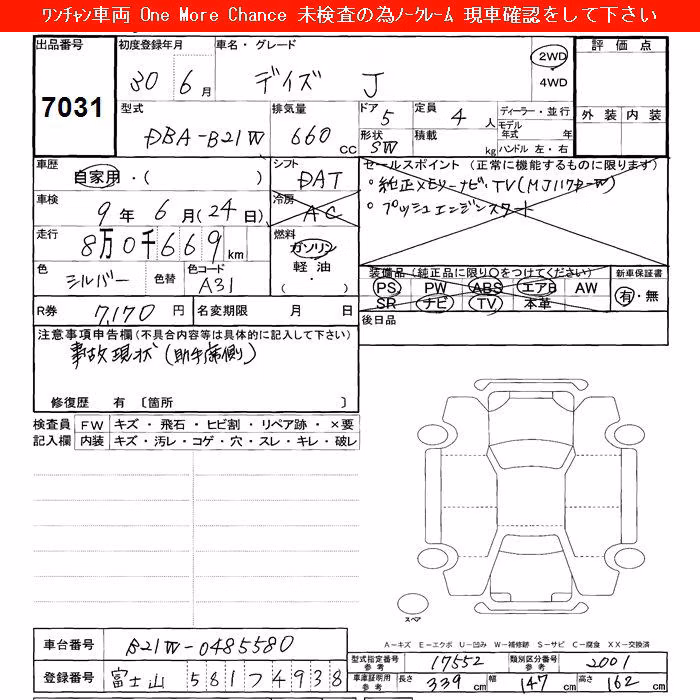 ﾜﾝﾁｬﾝ車両 One More Chance 未検査の為ﾉｰｸﾚｰﾑ 現車確認をして下さい
出品番号 初度登録年月 車名・グレード 評価点
7031 30 6月 デイズ J 2WD 4WD
外装 内装
型式 排気量 ドア 定員 ディーラー・並行
DBA-B21W 660 CC 5 4人 モデル年式 年
形状 積載 ハンドル 左・右
SW kg
車歴 シフト セールスポイント (正常に機能するものに限ります)
自家用・( ) DAT ・純正メモリーナビ・TV(MJ117D-W)
車検 冷房 ・プッシュエンジンスタート
9年6月(24日) AC
走行 燃料
8万0千669km ガソリン
軽油・
色 色替 色コード 装備品(純正品に限り○をつけてください) 新車保証書
シルバー A31 PS PW ABS エアB AW 有・無
SR ナビ TV 本革
R券 7,170円 名変期限 月 日 後日品
注意事項申告欄(不具合内容等は具体的に記入して下さい)
事故現状(助手席側)
修復歴 有 〔箇所 〕
検査員 FW キズ・飛石・ヒビ割・リペア跡・×要
記入欄 内装 キズ・汚レ・コゲ・穴・スレ・キレ・破レ
スペア
A－キズ E－エクボ U－凹み W－補修跡 S－サビ C－腐食 XX－交換済
車台番号 B21W-0485580
型式指定番号参考 17552 類別区分番号参考 2001
登録番号 富士山 581 フ 4938
車庫証明用参考 長さ 339cm 幅 147cm 高さ 162cm